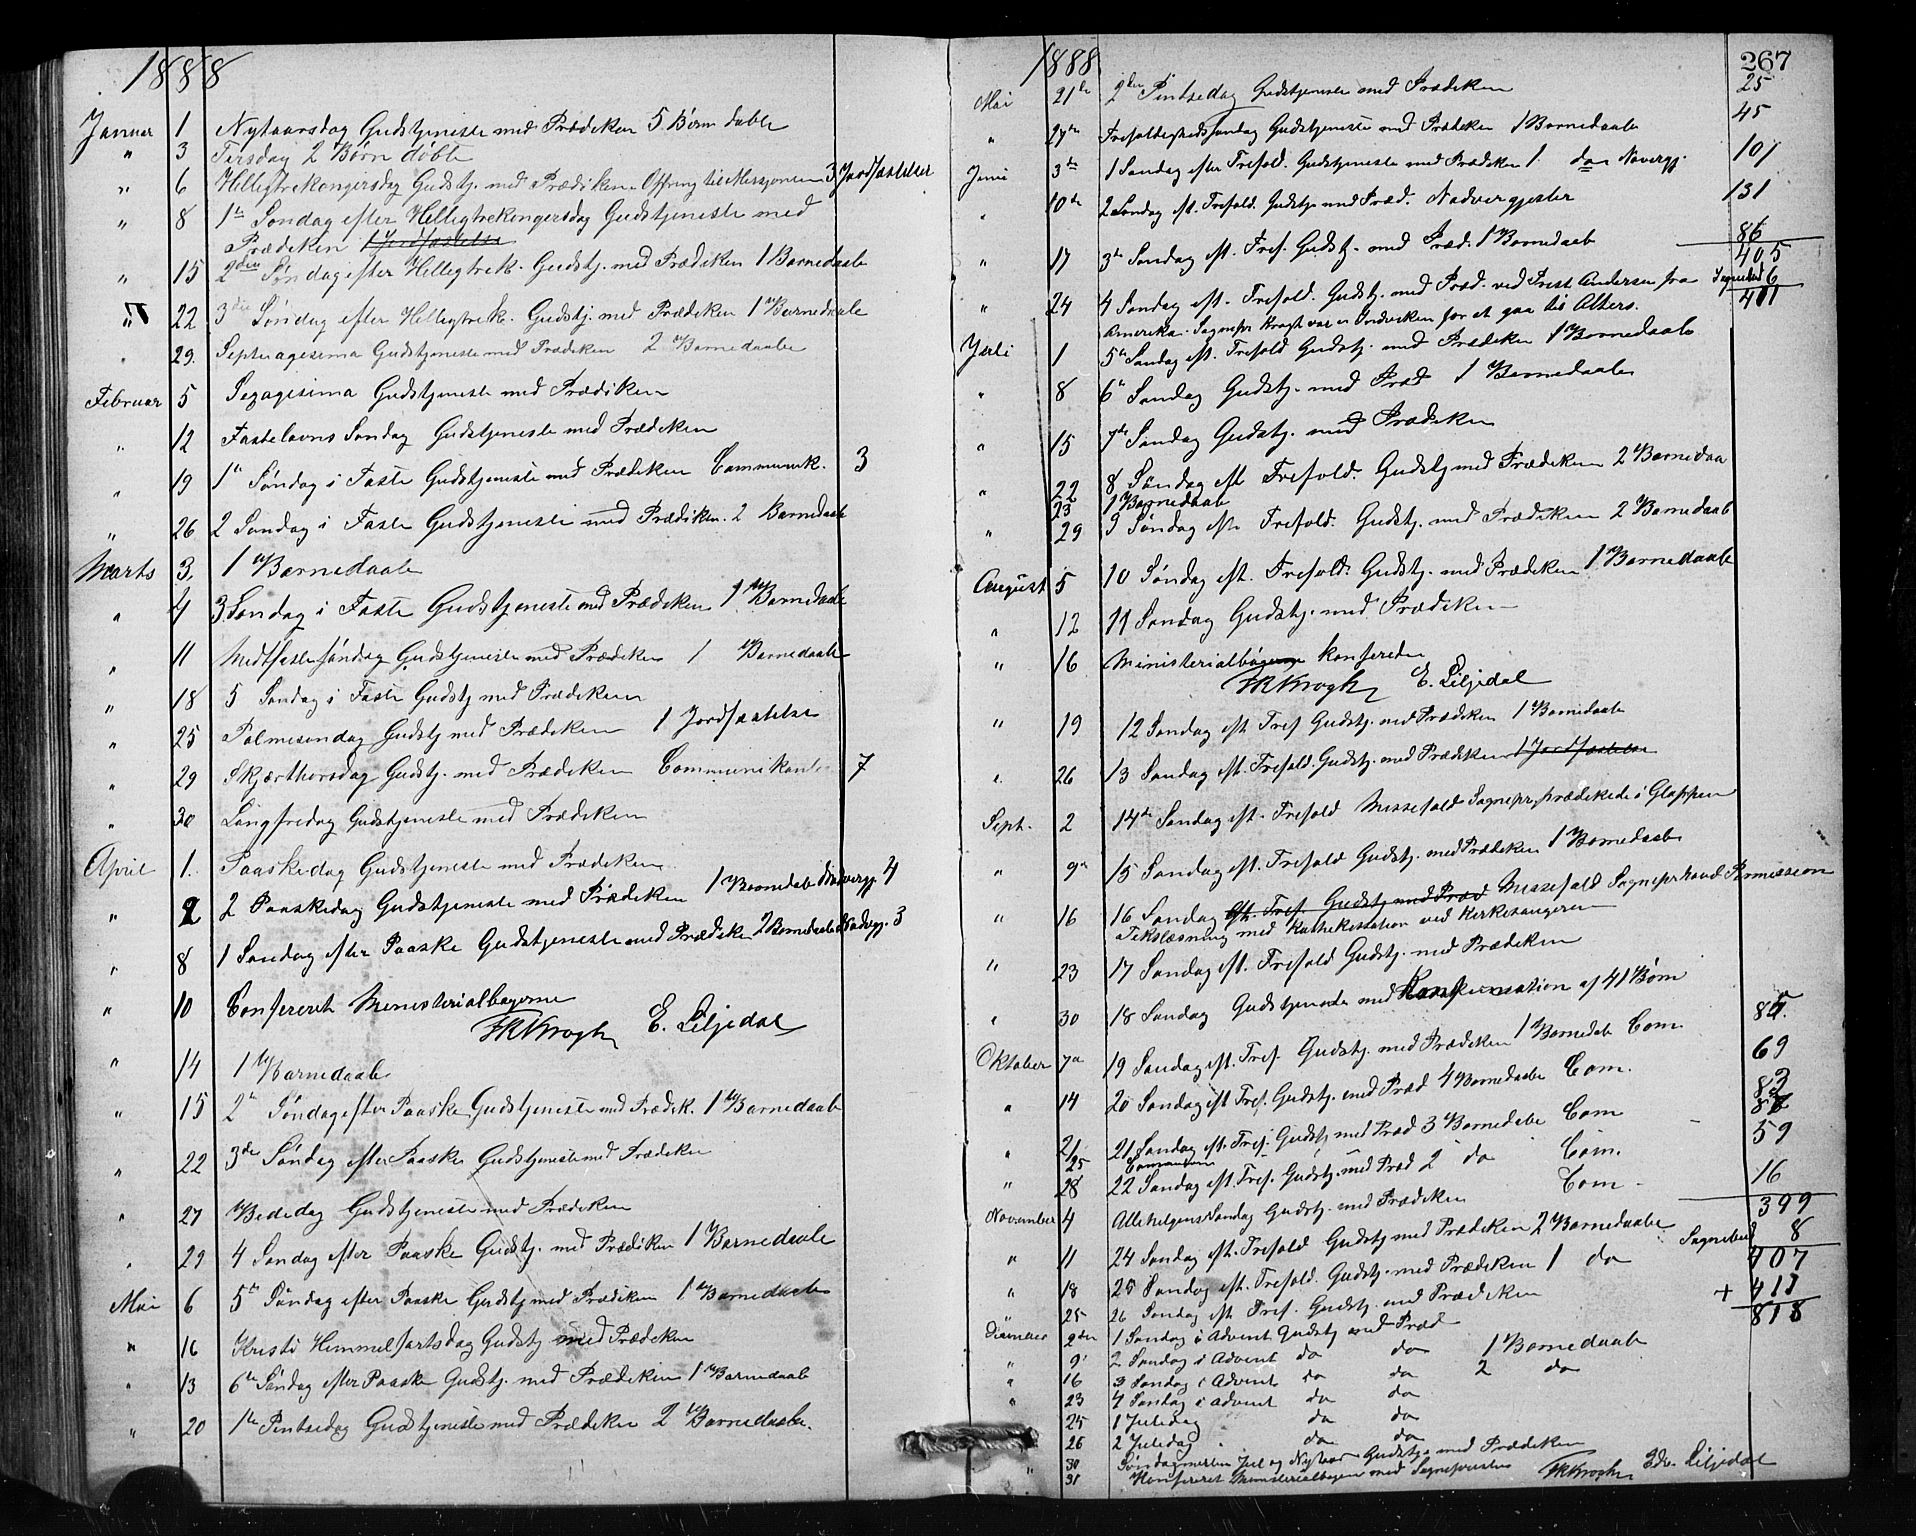 1888
Januar 1 Nytaarsdag Gudstjeneste med Prædiken 5 Børn døbte
" 3 Tirsdag 2 Børn døbte
" 6 Helligtrekongersdag Gudstj. med Prædiken. Ofring til Missjonen 3 Jordfæstelser
" 8 1ste Søndag efter Helligtrekongersdag Gudstjeneste med
Prædiken 1 Jordfæstelse
" 15 2den Søndag efter Helligtrek. Gudstj. med Prædiken 1 Barnedaab
" 22 3die Søndag efter Helligtrek. Gudstj. med Prædiken 1 Barnedaab
" 29. Septuagesima Gudstjeneste med Prædiken 2 Barnedaabe
Februar 5 Sexagesima Gudstjeneste med Prædiken
" 12 Fastelavns Søndag Gudstjeneste med Prædiken
" 19 1ste Søndag i Faste Gudstjeneste med Prædiken Communik. 3
" 26 2 Søndag i Faste Gudstjeneste med Prædiken. 2 Barnedaab
Marts 3. 1 Barnedaab
" 4 3 Søndag i Faste Gudstjeneste med Prædiken 1 Barnedaab
" 11 Midtfastesøndag Gudstjeneste med Prædiken 1 Barnedaab
" 18 5 Søndag i Faste Gudstj med Prædiken
" 25 Palmesøndag Gudstj med Prædiken 1 Jordfæstelse
" 29 Skjærthorsdag Gudstj. med Prædiken Communikanter 7
" 30 Langfredag Gudstjeneste med Prædiken
April 1. Paaskedag Gudstjeneste med Prædiken
" 2 2 Paaskedag Gudstjeneste med Prædiken 1 Barnedaab Nadvergj. 4
" 8 1 Søndag efter Paaske Gudstjeneste med Prædiken 2 Barnedaabe Nadvgj. 3
" 10 Confereret Ministerialbøgerne
HKKrogh E. Liljedal
" 14 1 Barnedaab
" 15 2n Søndag efter Paaske Gudstjeneste med Prædik. 1 Barnedaab
" 22 3die Søndag efter Paaske Gudstjeneste med Prædiken
" 27 Bededag Gudstjeneste med Prædiken
" 29 4 Søndag efter Paaske Gudstj. med Prædiken 1 Barnedaab
Mai 6 5te Søndag efter Paaske Gudstj med Prædiken 1 Barnedaab
" 16 Kristi Himmelfartsdag Gudstj med Prædiken
" 13 6te Søndag efter Paaske Gudstj. med Prædiken 1 Barnedaab
" 20 1ste Pintsedag Gudstjeneste med Prædiken 2 Barnedaabe.
1888 267
Mai 21de 2den Pintsedag Gudstjeneste med Prædiken 25
" 27de Trefoldighedssøndag Gudstjeneste med Prædiken 1 Barnedaab 45
Juni 3de 1 Søndag efter Trefold. Gudstjeneste med Prædiken 1 do Navergj. 101
" 10de 2 Søndag eft. Trefold. Gudstj med Præd. Nadvergjester 131
" 17 3de Søndag eft. Tref. Gudstj. med Præd. 1 Barnedaab 86
405
" 24 4 Søndag eft. Trefold. Gudstj. med Præd. ved Prest Andersen fra Sognebud 6
Amerika. Sognepr Krogh var i Indviken for at gaa til Alters. 411
Juli 1 5te Søndag eft. Trefold Gudstj. med Prædiken 1 Barnedaab
" 8 6te Søndag Gudstj. med Præd 1 Barnedaab
" 15 7de Søndag Gudstj. med Prædiken
" 22 8 Søndag eft Trefold. Gudstj med Prædiken 2 Barnedaa
23 1 Barnedaab
" 29 9 Søndag eft. Trefold. Gudstj. med Prædiken 2 Barnedaab
August 5 10 Søndag eft. Trefold. Gudstj. med Prædiken 1 Barnedaab
" 12 11 Søndag Gudstj. med Prædiken
" 16 Ministerialbøgerne konfereret
HKKrogh E. Liljedal
" 19 12 Søndag eft Tref Gudstj. med Prædiken 1 Barnedaab
" 26 13 Søndag eft. Trefold. Gudstj. med Prædiken 1 Jordfæstelse
Sept. 2 14de Søndag eft. Trefold Messefald Sognepr. prædikede i Gloppen
" 9n 15 Søndag eft. Trefold Gudstj. med Prædiken 1 Barnedaab
" 16 16 Søndag eft. Tref. Gudstj med Præd Messefald Sognepr havd Permission
Tekstlæsning med Kathekisation ved Kirkesangeren
" 23 17 Søndag eft. Trefold Gudstj. med Prædiken
" 30 18 Søndag Gudstjeneste med Konfirmation af 41 Børn
Oktober 7n 19 Søndag eft. Tref. Gudstj. med Prædiken 1 Barnedab Com. 85.
" 14 20 Søndag eft Tref. Gudstj. med Præd 4 Barnedaabe Com. 69
" 21 21 Søndag eft. Tref. Gudstj med Præd 3 Barnedabe Com 82
25 Communion 88
" 28 22 Søndag eft. Tref. Gudstj. med Præd 2 do Com. 59
November 4 Allehelgens Søndag Gudstj. med Prædiken Com. 16
399
" 11 24 Søndag eft. Trefold Gudstj med Prædiken 2 Barnedaabe Sognebud 8
407
" 18 25 Søndag eft. Trefold. Gudstj. med Prædiken 1 do
" 25 26 Søndag eft Tref. Gudstj med Prædiken + 411
818
December 2den 1 Søndag i Advent Gudstj med Præd
" 9' 2 Søndag i Advent do do 1 Barnedaab
" 16 3 Søndag i Advent do do 2 do
" 23 4 Søndag i Advent do do
25 1 Juledag do do
26 2 Juledag do do
30 Søndag mellem Jul og Nytaar Gudstj. med Prædiken
" 31 Konfereret Ministerialbogen med Sognepresten HKKrogh Edv. Liljedal